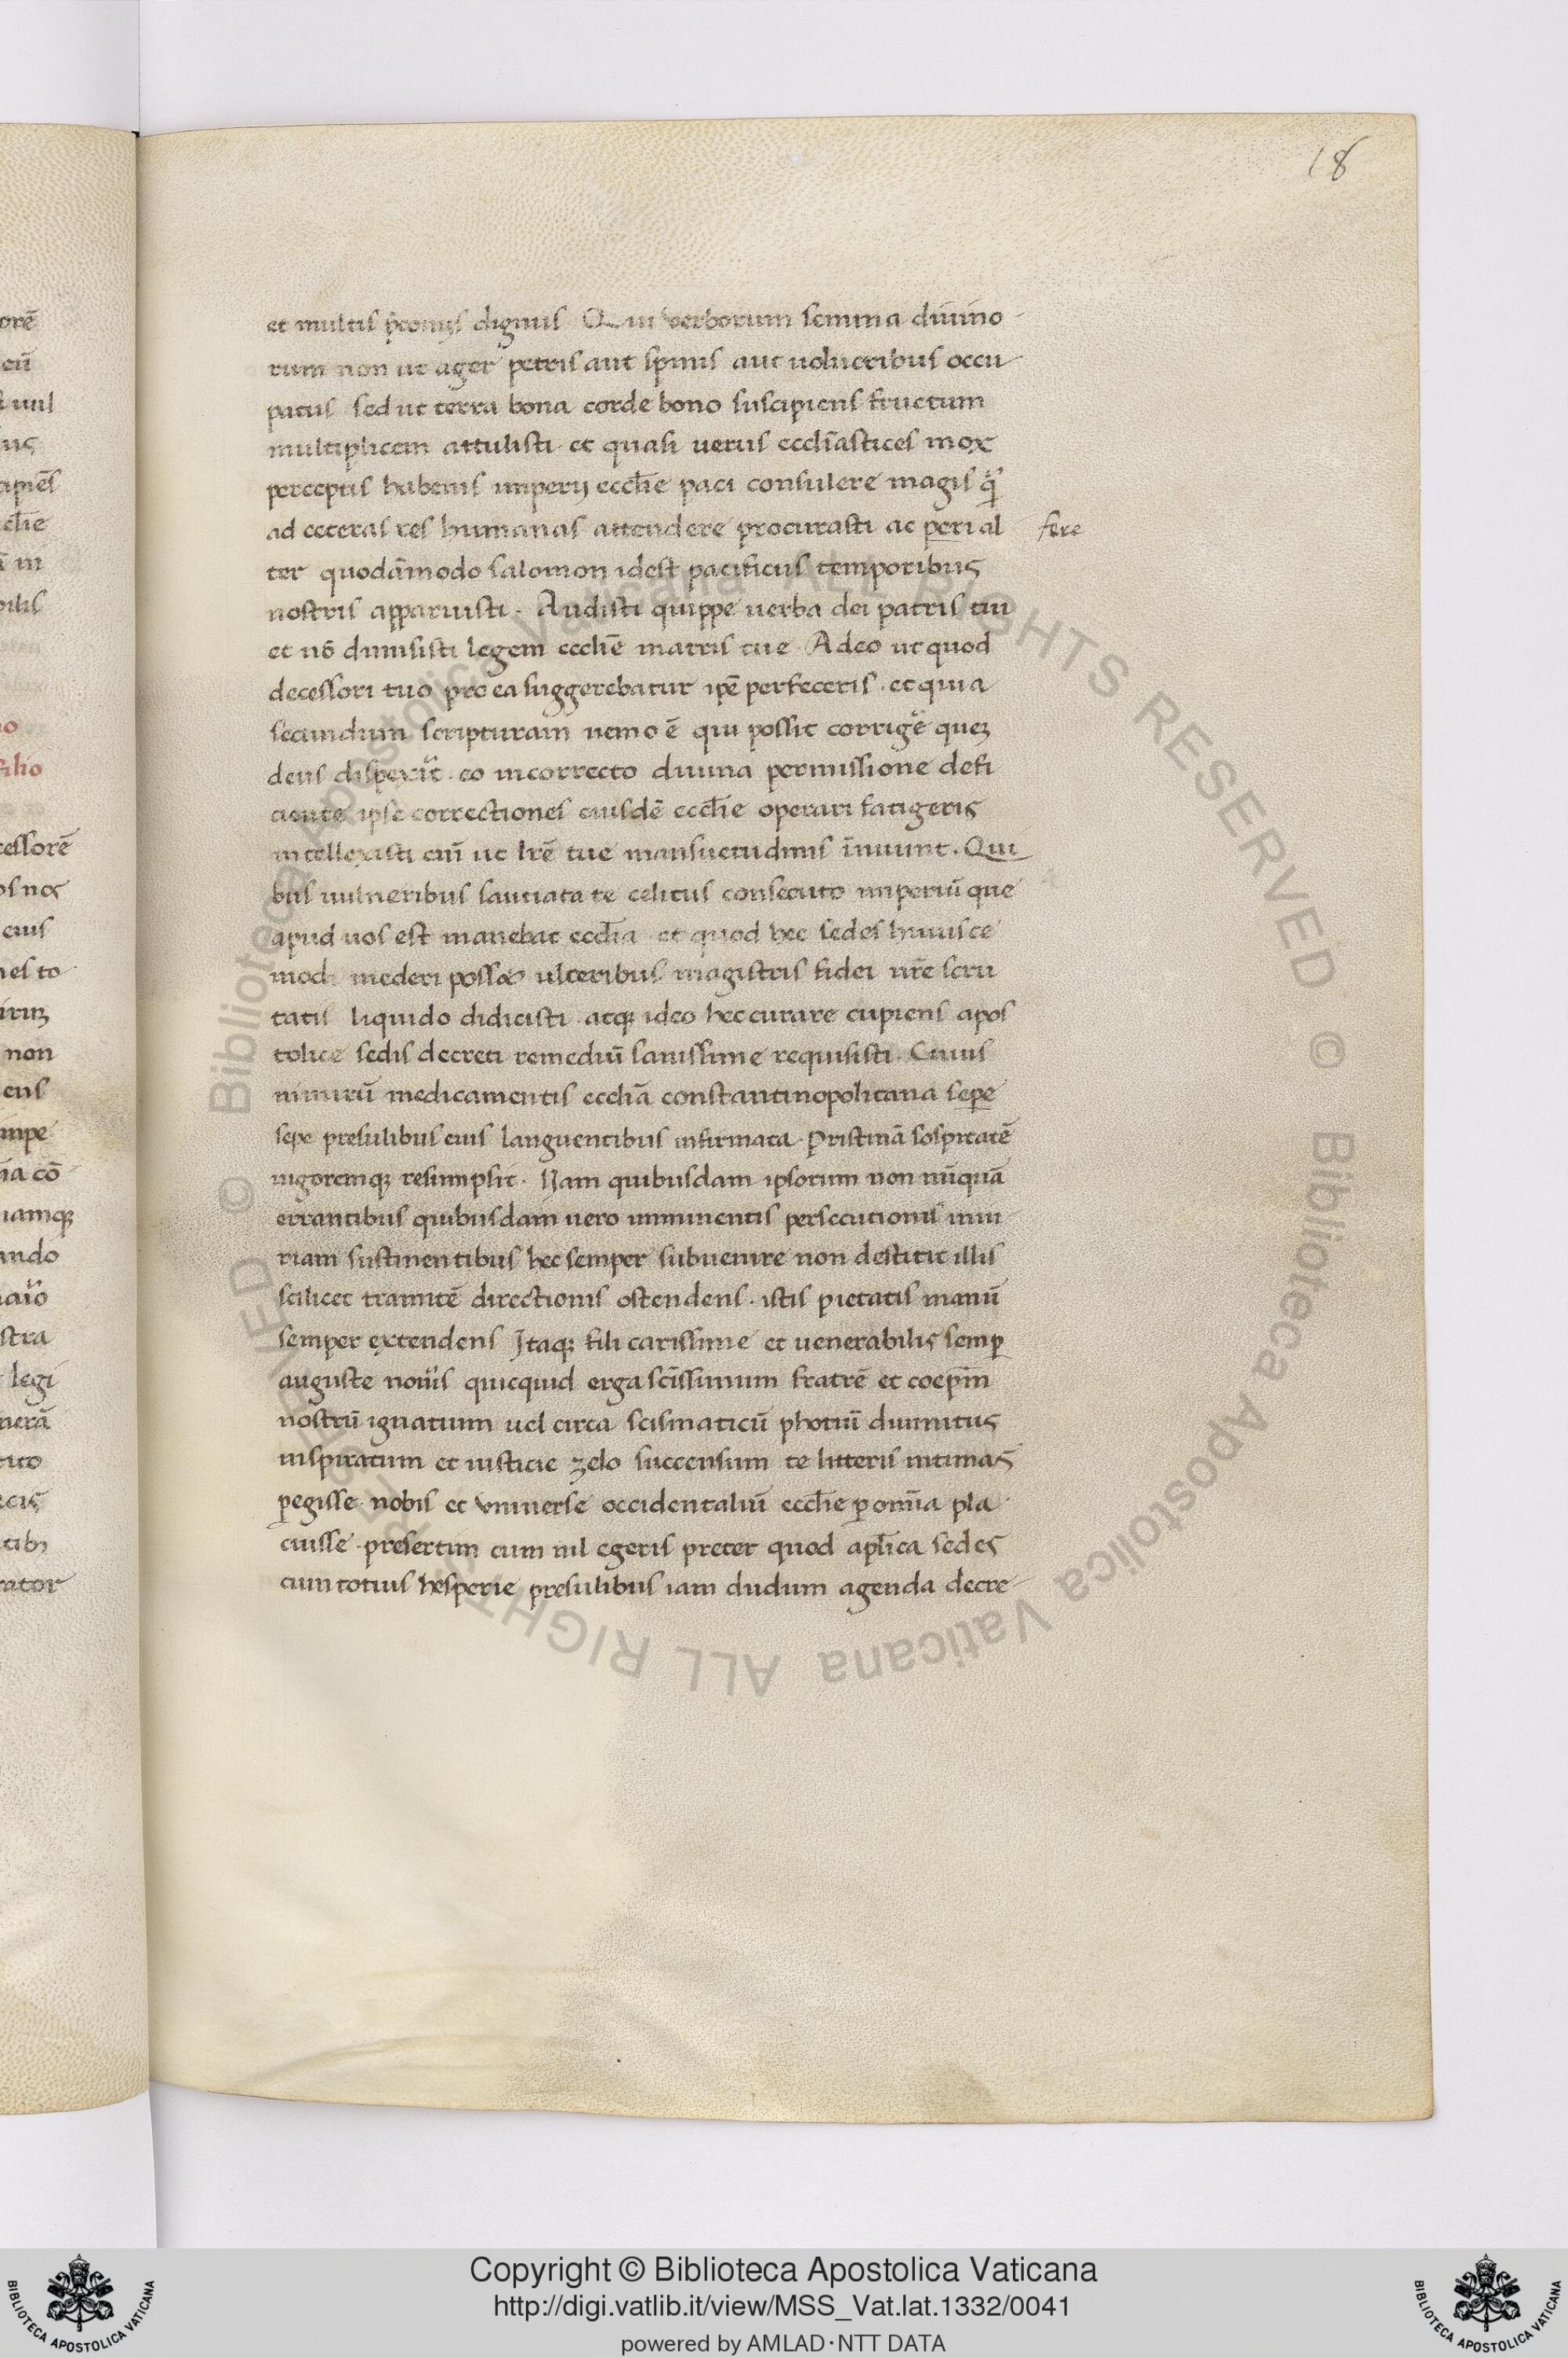 18
et multis p̄conijs dignus Qui verborum semina diuino
rum non ut ager petris aut spinis aut uolucribus occu
patus sed ut terra bona corde bono suscipiens fructum
multiplicem attulisti et quasi uerus eccłiastices mox
perceptis habenis imperij eccłie paci consulere magis q̄
ad ceteras res humanas attendere procurasti ac peri al
fere
ter quodāmodo salomon idest pacificus temporibus
nostris apparuisti. Audisti quippe uerba dei patris tui
et nō dimisisti legem eccłie matris tue Adeo ut quod
decessori tuo pro ea suggerebatur ip̄e perfeceris. et quia
secundum scripturam nemo ē qui possit corrigē quez
deus dispexit. eo incorrecto diuina permissione defi
ciente ipse correctiones eiusdē eccłie operari satigeris
intellexisti eni ut lr̄e tue mansuetudinis īnuunt. Qui
bus uulneribus sauciata te celitus consecuto imperiū que
apud uos est manebat eccłia et quod hec sedes huiusce
modi mederi posset ulceribus magistris fidei nr̄e scru
tatis liquido didicisti atq; ideo hec curare cupiens apos
tolice sedis decreti remediū sanissime requisisti. Cuius
nimirū medicamentis eccłia constantinopolitana sepe
sepe presulibus eius languentibus infirmata. Pristinā sospitatē
uigoremq; resumpsit. Nam quibusdam ipsorum non nūquā
errantibus quibusdam uero imminentis persecutionis iniu
riam sustinentibus hec semper subuenire non destitit illis
scilicet tramitē directionis ostendens. istis pietatis manū
semper extendens Itaq; fili carissime et uenerabilis semp̱
auguste noueris quicquid erga sc̄issimum fratrē et coep̄m
nostrū ignatium uel circa scismaticū photiū diuinitus
inspiratum et iusticie zelo succensum te litteris intimas
p̱egisse nobis et vniuerse occidentaliū eccłie p̱ omīa pla
cuisse presertim cum nil egeris preter quod apłica sedes
cum totius hesperie presulibus iam dudum agenda decre
Copyright © Biblioteca Apostolica Vaticana
http://digi.vatlib.it/view/MSS_Vat.lat.1332/0041
powered by AMLAD·NTT DATA